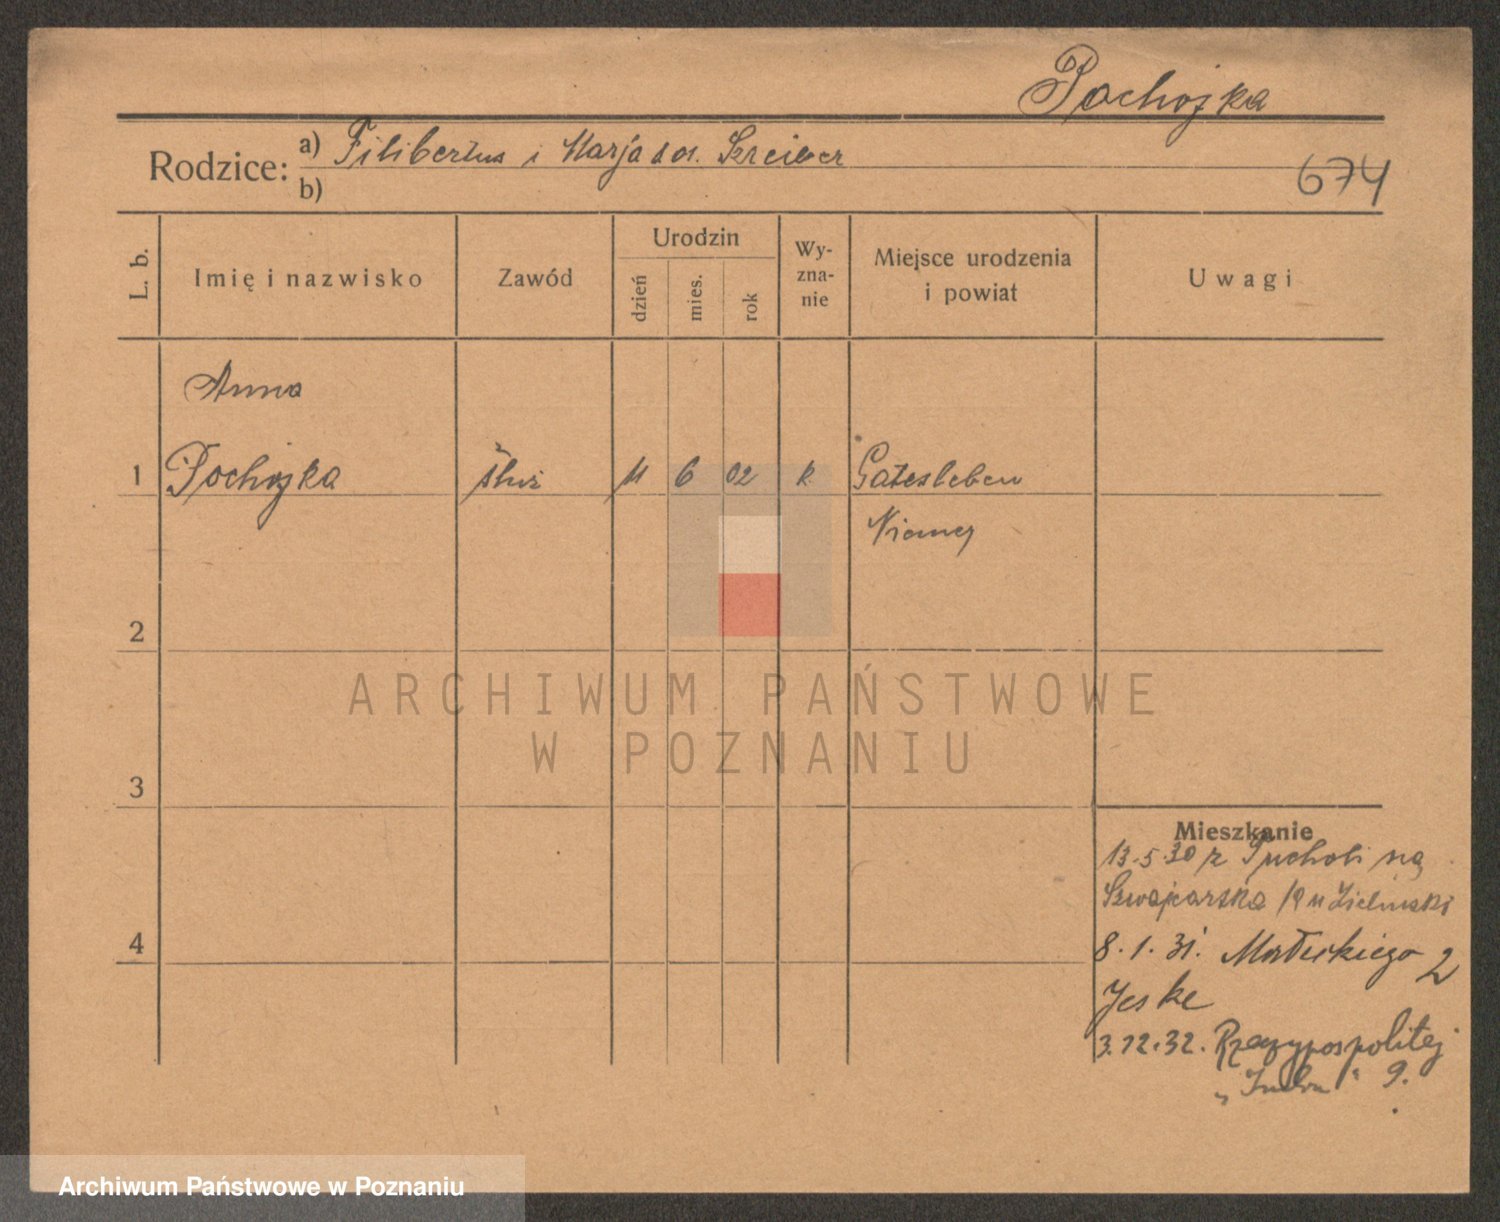 Pochojka
Rodzice: a) Filibertus i Marja Szreiber
b)
674
L. b.
Imię i nazwisko
Zawód
Urodzin
dzień
mies.
rok
Wy-
zna-
nie
Miejsce urodzenia
i powiat
Uwagi
Anna
1 Pochojka służ 11 6 02 k. Gatesleben
Niemcy
2
ARCHIWUM PAŃSTWOWE
W POZNANIU
3
Mieszkanie
13.5.30 z Tucholi na
Szwajcarska 19 u Zielinski
4
8.1.31. Małeckiego 2
Jeske
3.12.32. Rzeczypospolitej
9.
Archiwum Państwowe w Poznaniu